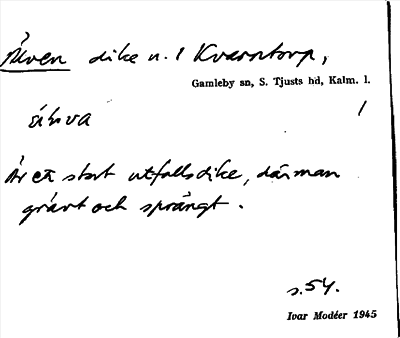 Åven dike n. 1 Kvarntorp,
Gamleby sn, S. Tjusts hd, Kalm. l.
åhva
Är ett stort utfallsdike, där man
grävt och sprängt.
s. 54.
Ivar Modéer 1945